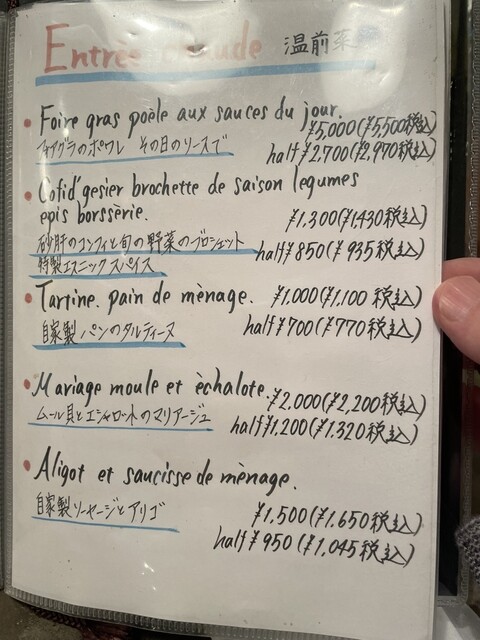 Entrée chaude 温前菜
• Foire gras poèle aux sauces du jour.
¥5,000(¥5,500税込)
フォアグラのポワレ その日のソースで
half¥2,700(¥2,970税込)
• Cofid'gesier brochette de saison legumes
epis borssèrie.
¥1,300(¥1,430税込)
砂肝のコンフィと旬の野菜のブロシェット
half¥850(¥935税込)
特製エスニックスパイス
• Tartine. pain de mènage.
¥1,000(¥1,100税込)
自家製パンのタルティーヌ
half¥700(¥770税込)
• Mariage moule et èchalote.
¥2,000(¥2,200税込)
ムール貝とエシャロットのマリアージュ
half¥1,200(¥1,320税込)
• Aligot et saucisse de mènage.
自家製ソーセージとアリゴ
¥1,500(¥1,650税込)
half¥950(¥1,045税込)